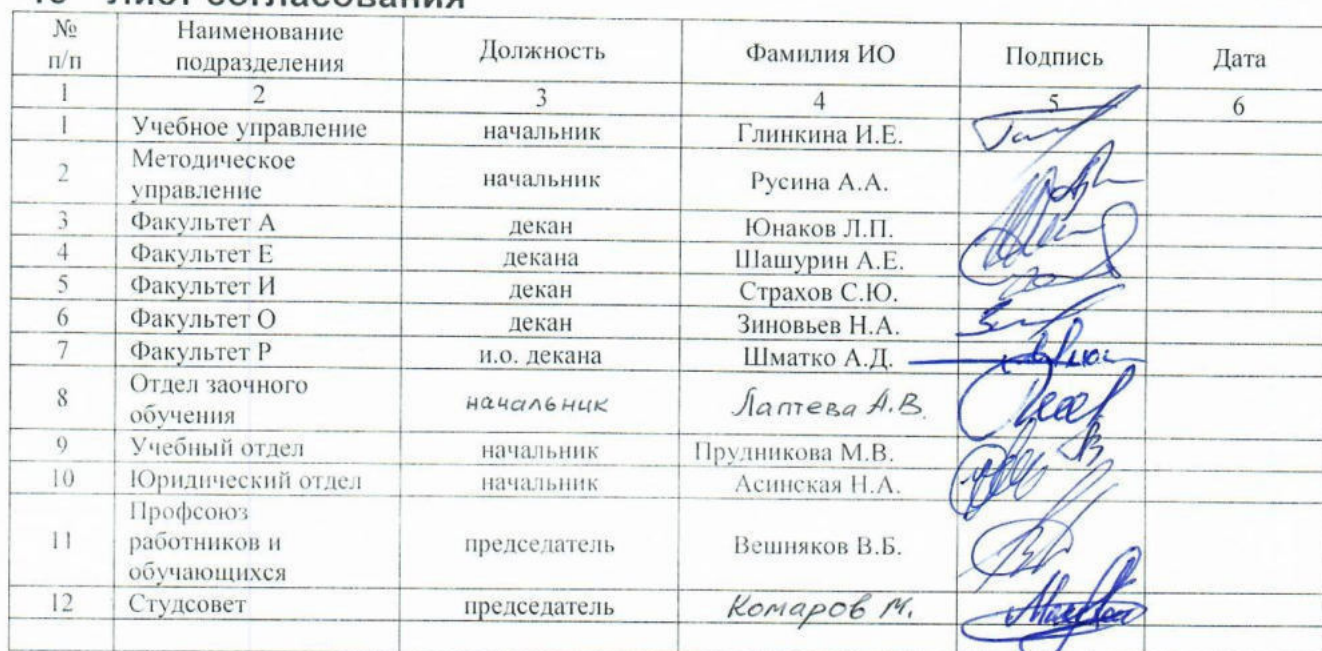 Лист согласования
№ п/п Наименование подразделения Должность Фамилия ИО Подпись Дата
1 2 3 4 5 6
1 Учебное управление начальник Глинкина И.Е.
2 Методическое управление начальник Русина А.А.
3 Факультет А декан Юнаков Л.П.
4 Факультет Е декана Шашурин А.Е.
5 Факультет И декан Страхов С.Ю.
6 Факультет О декан Зиновьев Н.А.
7 Факультет Р и.о. декана Шматко А.Д.
8 Отдел заочного обучения начальник Лаптева А.В.
9 Учебный отдел начальник Прудникова М.В.
10 Юридический отдел начальник Асинская Н.А.
11 Профсоюз работников и обучающихся председатель Вешняков В.Б.
12 Студсовет председатель Комаров М.